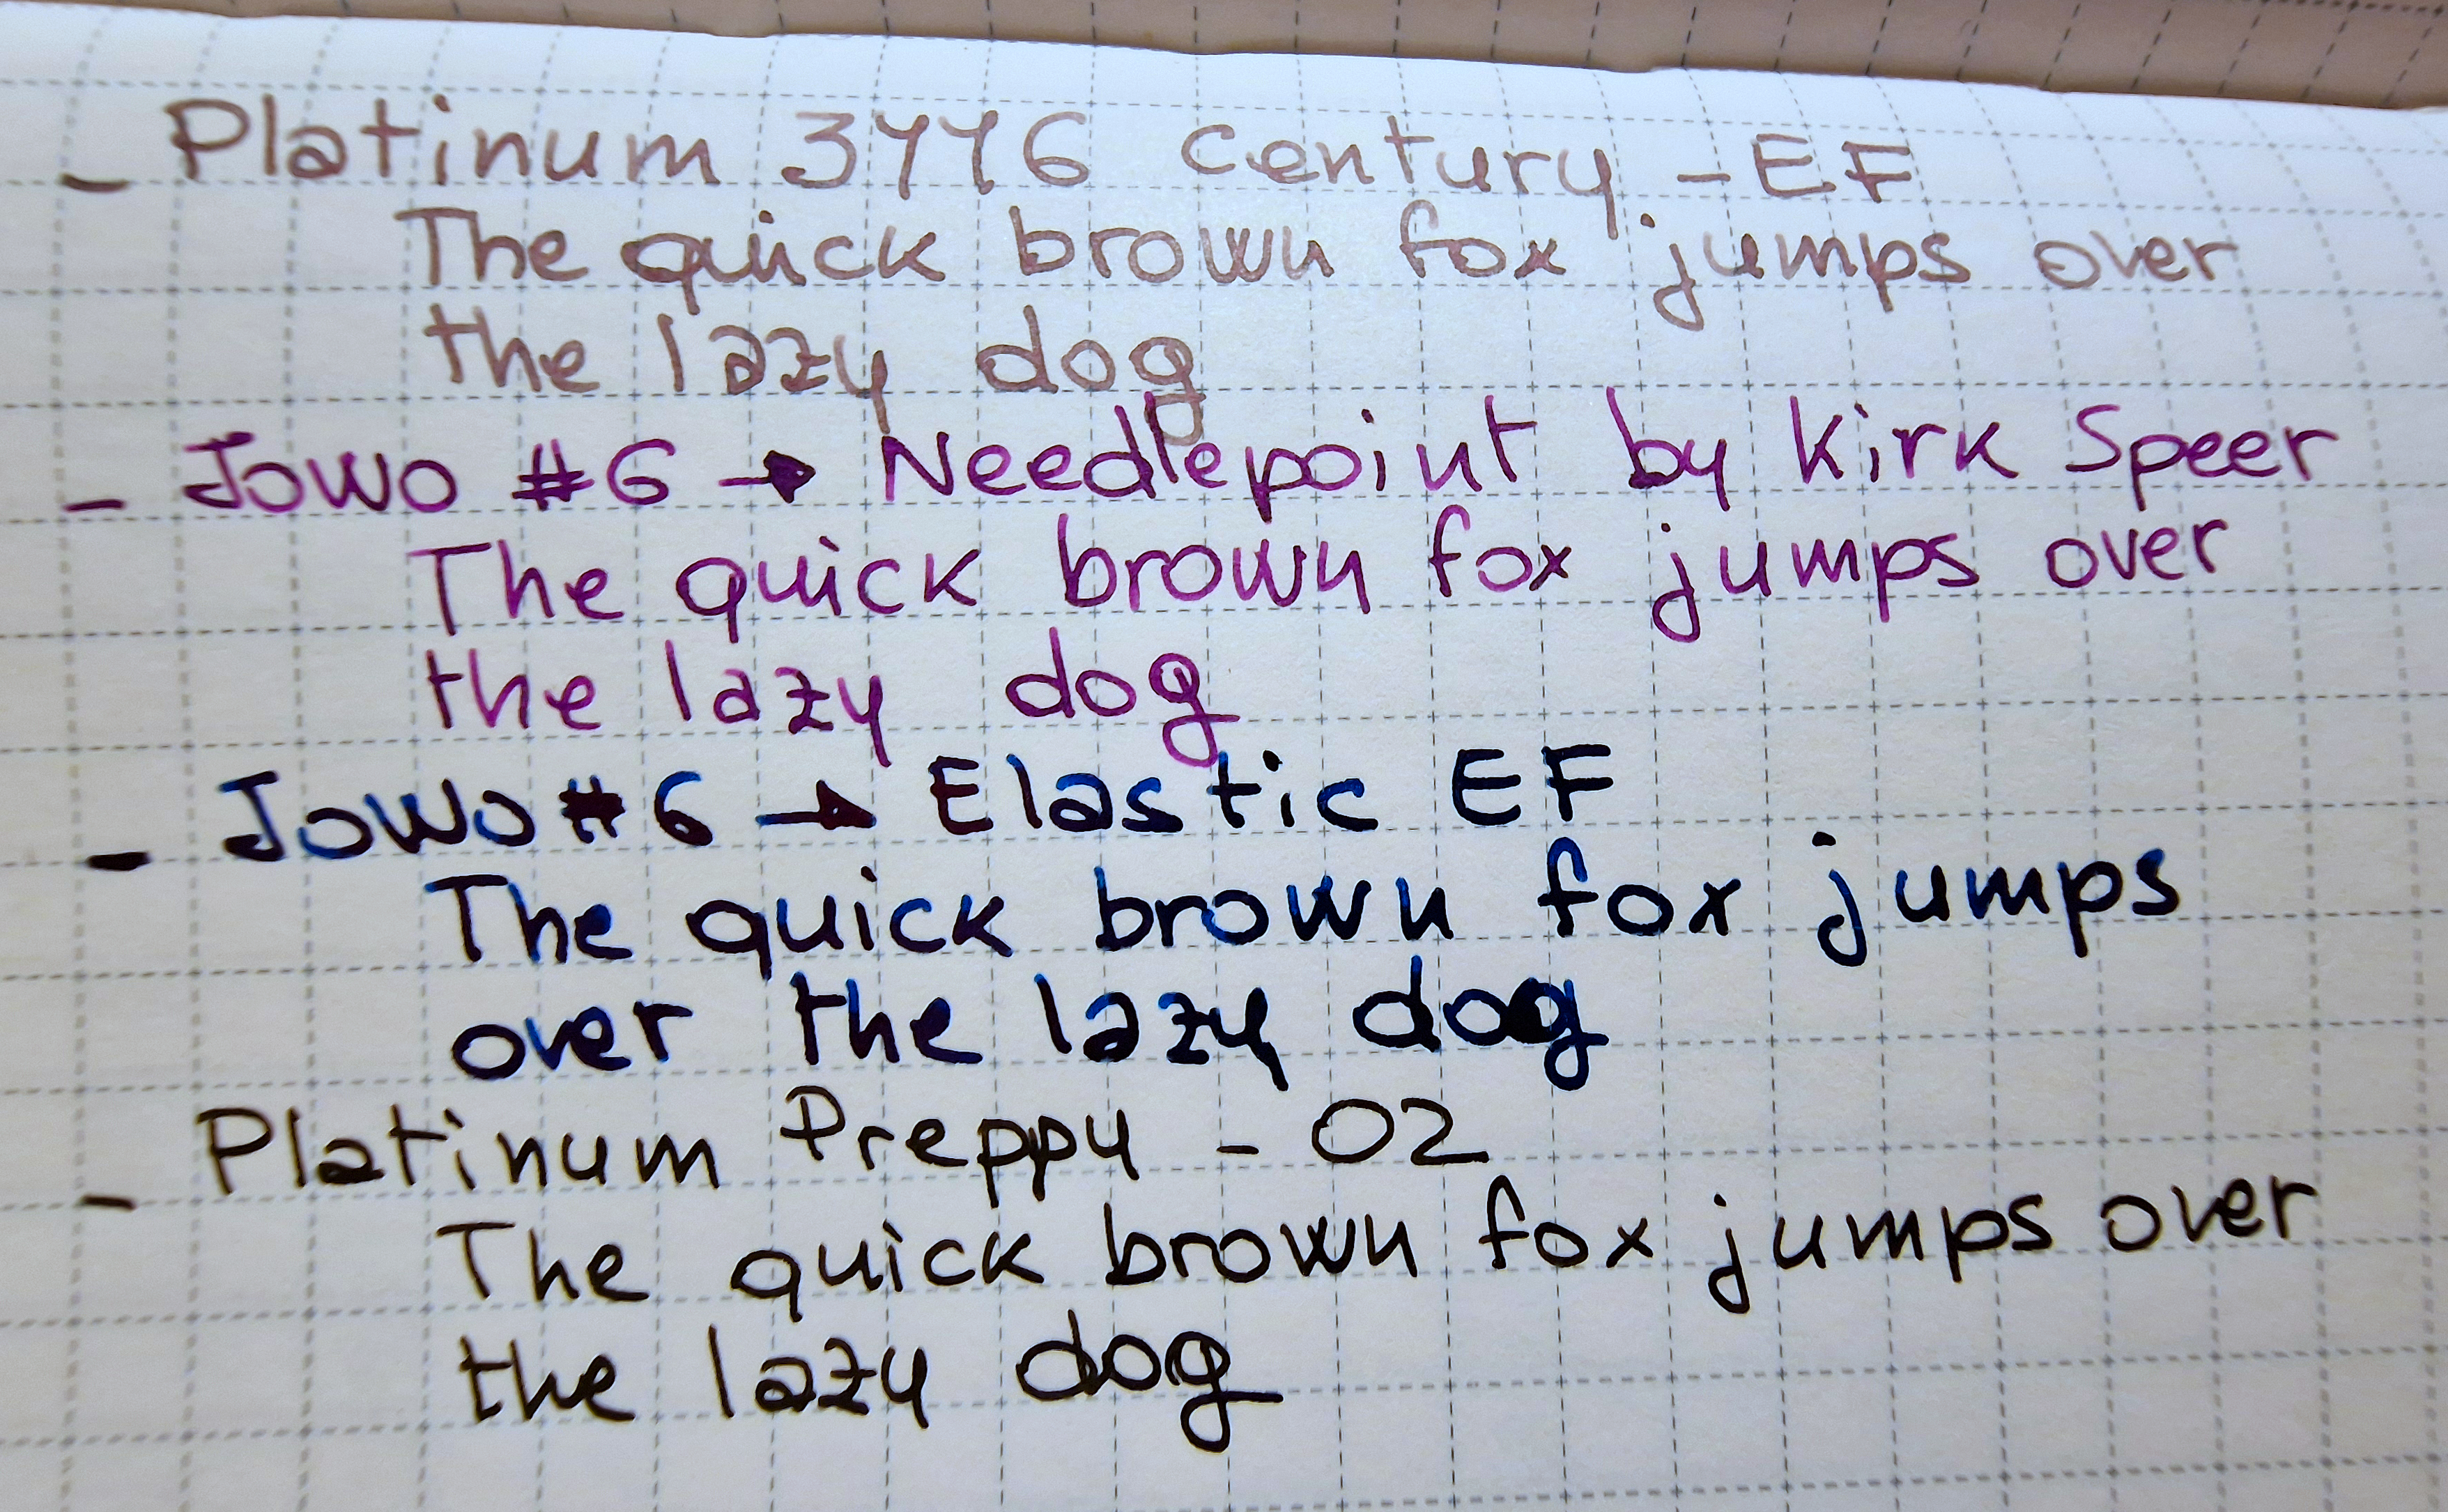 - Platinum 3776 Century - EF
The quick brown fox jumps over
the lazy dog
- Jowo #6 → Needlepoint by Kirk Speer
The quick brown fox jumps over
the lazy dog
- JoWo #6 → Elastic EF
The quick brown fox jumps
over the lazy dog
- Platinum Preppy - 02
The quick brown fox jumps over
the lazy dog